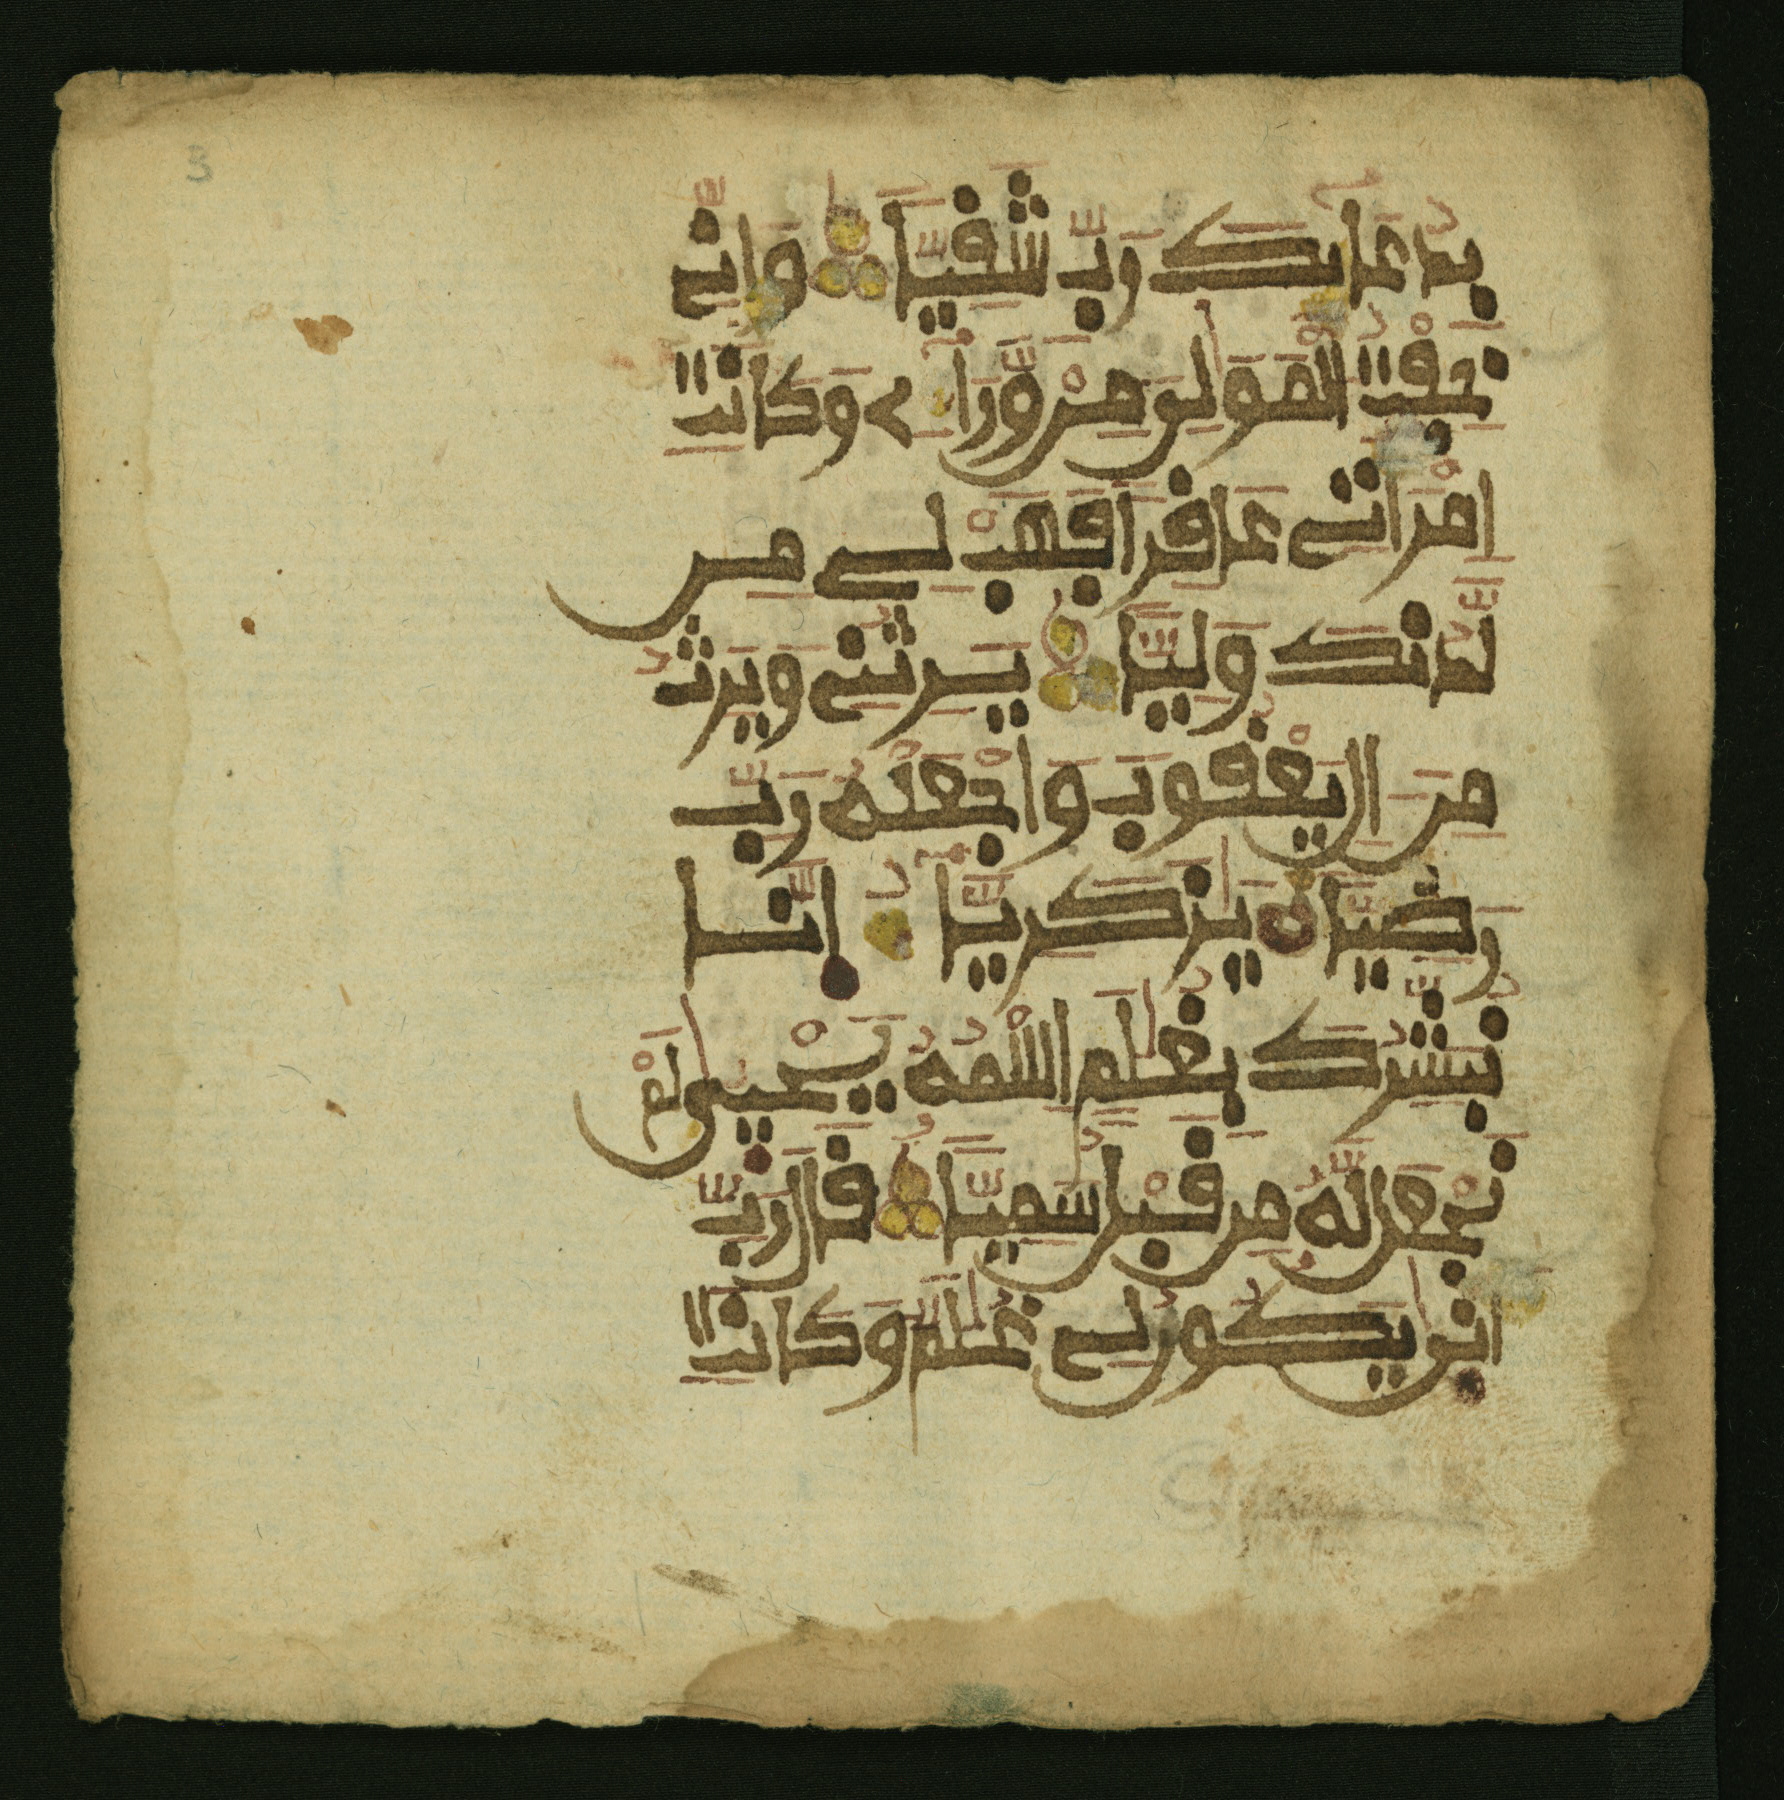 3
بِدُعَائِكَ رَبِّ شَقِيّٗا وَإِنِّے
خِفْتُ الْمَوَٰلِيَ مِنْ وَّرَآءِے وَكَانَتِ
اِمْرَأَتِے عَاقِرٗا فَهَبْ لِے مِن
لَّدُنكَ وَلِيّٗا يَرِثُنِے وَيَرِثُ
مِنَ اٰلِ يَعْقُوبَ وَاجْعَلْهُ رَبِّ
رَضِيّٗا يَٰزَكَرِيَّآءُ اِنَّا
نُبَشِّرُكَ بِغُلَٰمٍ اِسْمُهُ يَحْيَىٰ لَمْ
نَجْعَل لَّهُ مِن قَبْلُ سَمِيّٗا قَالَ رَبِّ
أَنَّىٰ يَكُونُ لِے غُلَٰمٞ وَكَانَتِ